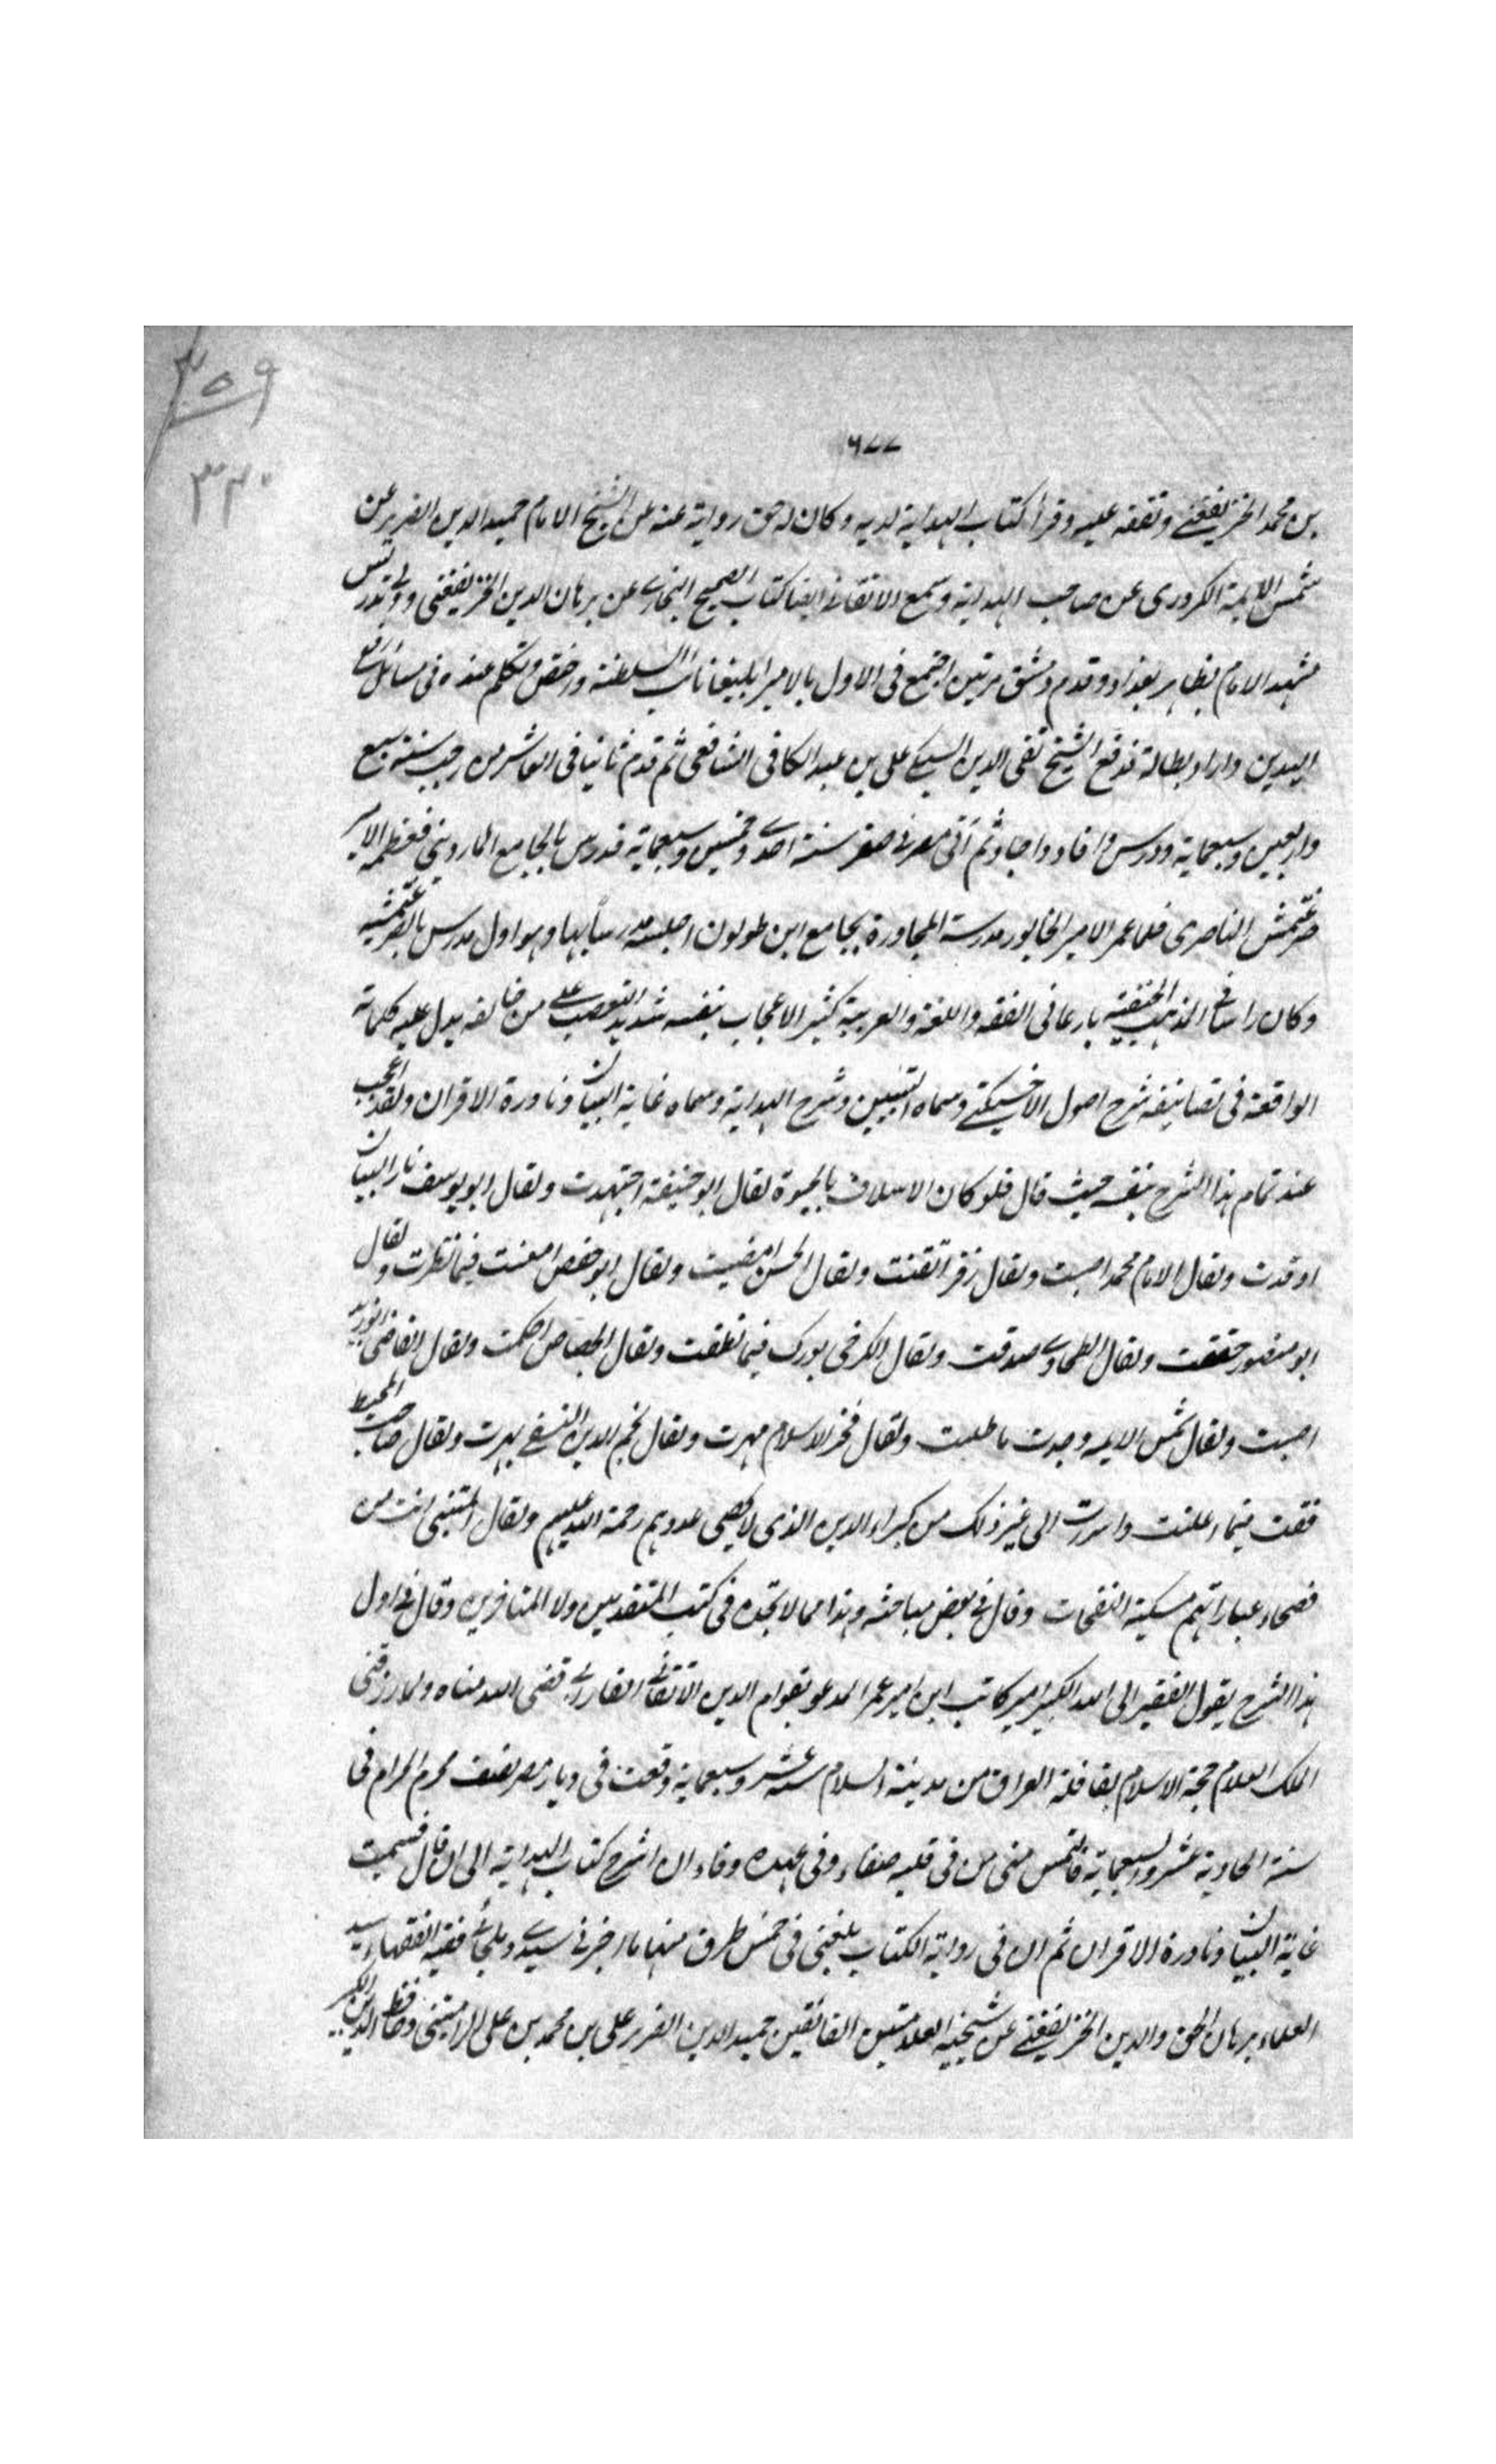 ٣٥٩
٣٢٠
٦٧٧
بن محمد الخريفغني وتفقه عليه وقرأ كتاب الهداية لديه وكان له حق رواية عنه عن الشيخ الامام حميد الدين الضرير عن
شمس الائمة الكردرى عن صاحب الهداية وسمع الاتقاني ايضا كتاب الصحيح البخاري عن برهان الدين الخريفغني وولي تدريس
مشهد الامام بظاهر بغداد وقدم دمشق مرتين اجتمع فى الاول بالامير ايلبغا نائب السلطنة ورخص وتكلم عنده فى مسائل رفع
اليدين واراد بطاله فدفع الشيخ تقى الدين السبكي على بن عبد الكافى الشافعى ثم قدم ثانيا فى العاشر من رجب سنة سبع
واربعين وسبعماية ودرس وافاد واجاد ثم اتى مصر في صفر سنة احدى وخمسين وسبعماية فدرس بالجامع الماردينى فعظمه الامير
صرغتمش الناصرى فلما عمر الامير المذبور مدرسة المجاورة بجامع ابن طولون اجلسه مدرسا بها وهو اول مدرس بالصرغتمشية
وكان راسا في المذهب الحنفية بارعا فى الفقه واللغة والعربية كثير الاعجاب بنفسه شديد التعصب على من خالفه يدل عليه كلماته
الواقعة فى تصانيفه شرح اصول الاخسيكتي وسماه التبيين وشرح الهداية وسماه غاية البيان ونادرة الاقران ولقد اعجب
عند تمام هذا الشرح بنفسه حيث قال فلو كان الاسلاف بالحيوة لقال ابو حنيفة اجتهدت ولقال ابو يوسف نار البيان
اوقدت ولقال الامام محمد احسنت ولقال زفر اتقنت ولقال الحسن امضيت ولقال ابو حفص امعنت فيما نظرت ولقال
ابو منصور حققت ولقال الطحاوي صدقت ولقال الكرخى بورك فيما نطقت ولقال الجصاص احكمت ولقال القاضى ابو زيد
اصبت ولقال شمس الائمه وجدت ما طلبت ولقال فخر الاسلام مهرت ولقال نجم الدين النسفي بهرت ولقال صاحب المحيط
فقت فيما اعلنت واسررت الى غير ذلك من كبراء الدين الذى لا يحصى عددهم رحمة الله عليهم ولقال المتنبى انت من
فصحاء عباراتهم مسكية النفحات وقال في بعض مباحثه وهذا مما لا تجده فى كتب المتقدمين ولا المتاخرين وقال في اول
هذا الشرح يقول الفقير الى الله الكبير امير كاتب ابن امير عمر المدعو بقوام الدين الاتقاني الفارابي قضى الله مناه ولما رزقنى
الملك العلام حجة الاسلام بقافلة العراق من مدينة السلام سنة عشر وسبعماية وقعت فى ديار مصر بنصف محرم الحرام فى
سنة الحادية عشر والسبعماية فالتمس منى من فى قلبه صفاء وفى عهده وفاء ان اشرح كتاب الهداية الى ان قال فسميت
غاية البيان ونادرة الاقران ثم ان فى رواية الكتاب بلغنى فى خمس طرق منها ما اخبرني سيدي وملجائي فقيه الفقهاء سيد
العلماء برهان الحق والدين الخريفغني عن شيخيه العلامتين الفائقين حميد الدين الضرير على بن محمد بن على الرامشى وحافظ الدين الكبير